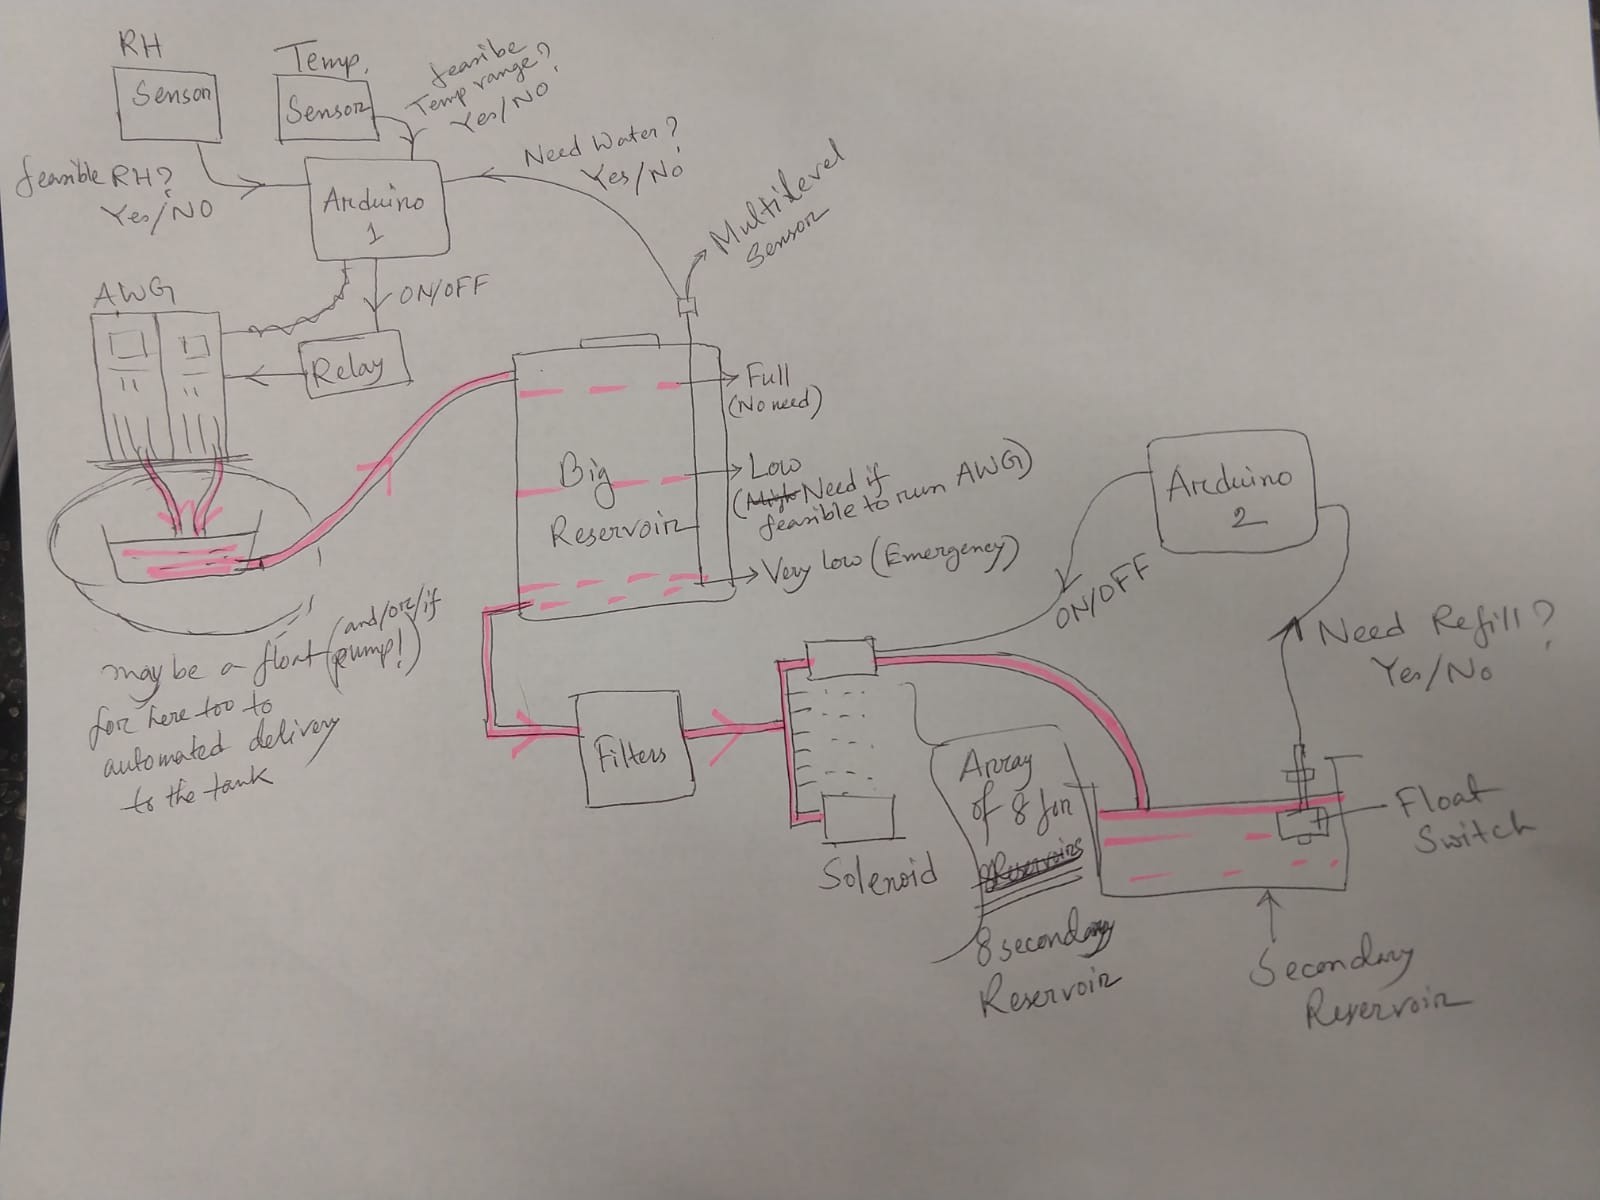 RH
Sensor
Temp.
Sensor
feasibe
Temp range?
Yes/NO
feasible RH?
Yes/NO
Arduino
1
Need Water?
Yes/No
Multilevel
Sensor
AWG
ON/OFF
Relay
Full
(No need)
Big
Reservoir
Low
(Need if
feasible to run AWG)
Very low (Emergency)
Arduino
2
ON/OFF
Need Refill?
Yes/No
may be a float (and/or/if
pump!)
for here too to
automated delivery
to the tank
Filters
Solenoid
Array
of 8 for
Reservoirs
8 secondary
Reservoir
Float
Switch
Secondary
Reservoir